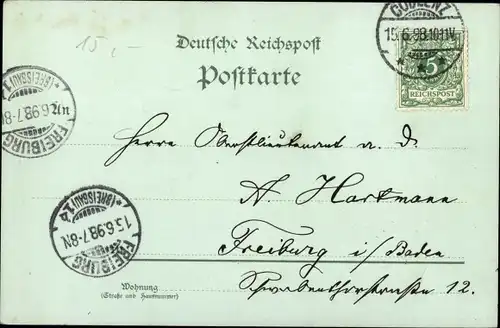 15,-
COBLENZ
15.6.98.10-11V.
Deutsche Reichspost
Postkarte
5
REICHSPOST
FREIBURG
.6.98.7-8
* (BREISGAU) 1 *
An
Herrn Oberstlieutenant a. D.
A. Hartmann
Freiburg i/Baden
Schwabenthorstrasse 12.
FREIBURG
15.6.98.7-8N
* (BREISGAU) 1 *
Wohnung
(Straße und Hausnummer)